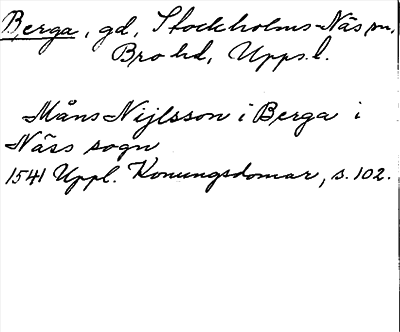 Berga, gd, Stockholms-Näs sn,
Bro hd, Upps.l.
Måns Nijlsson i Berga i
Näss sogn
1541 Uppl. Konungsdomar, s. 102.